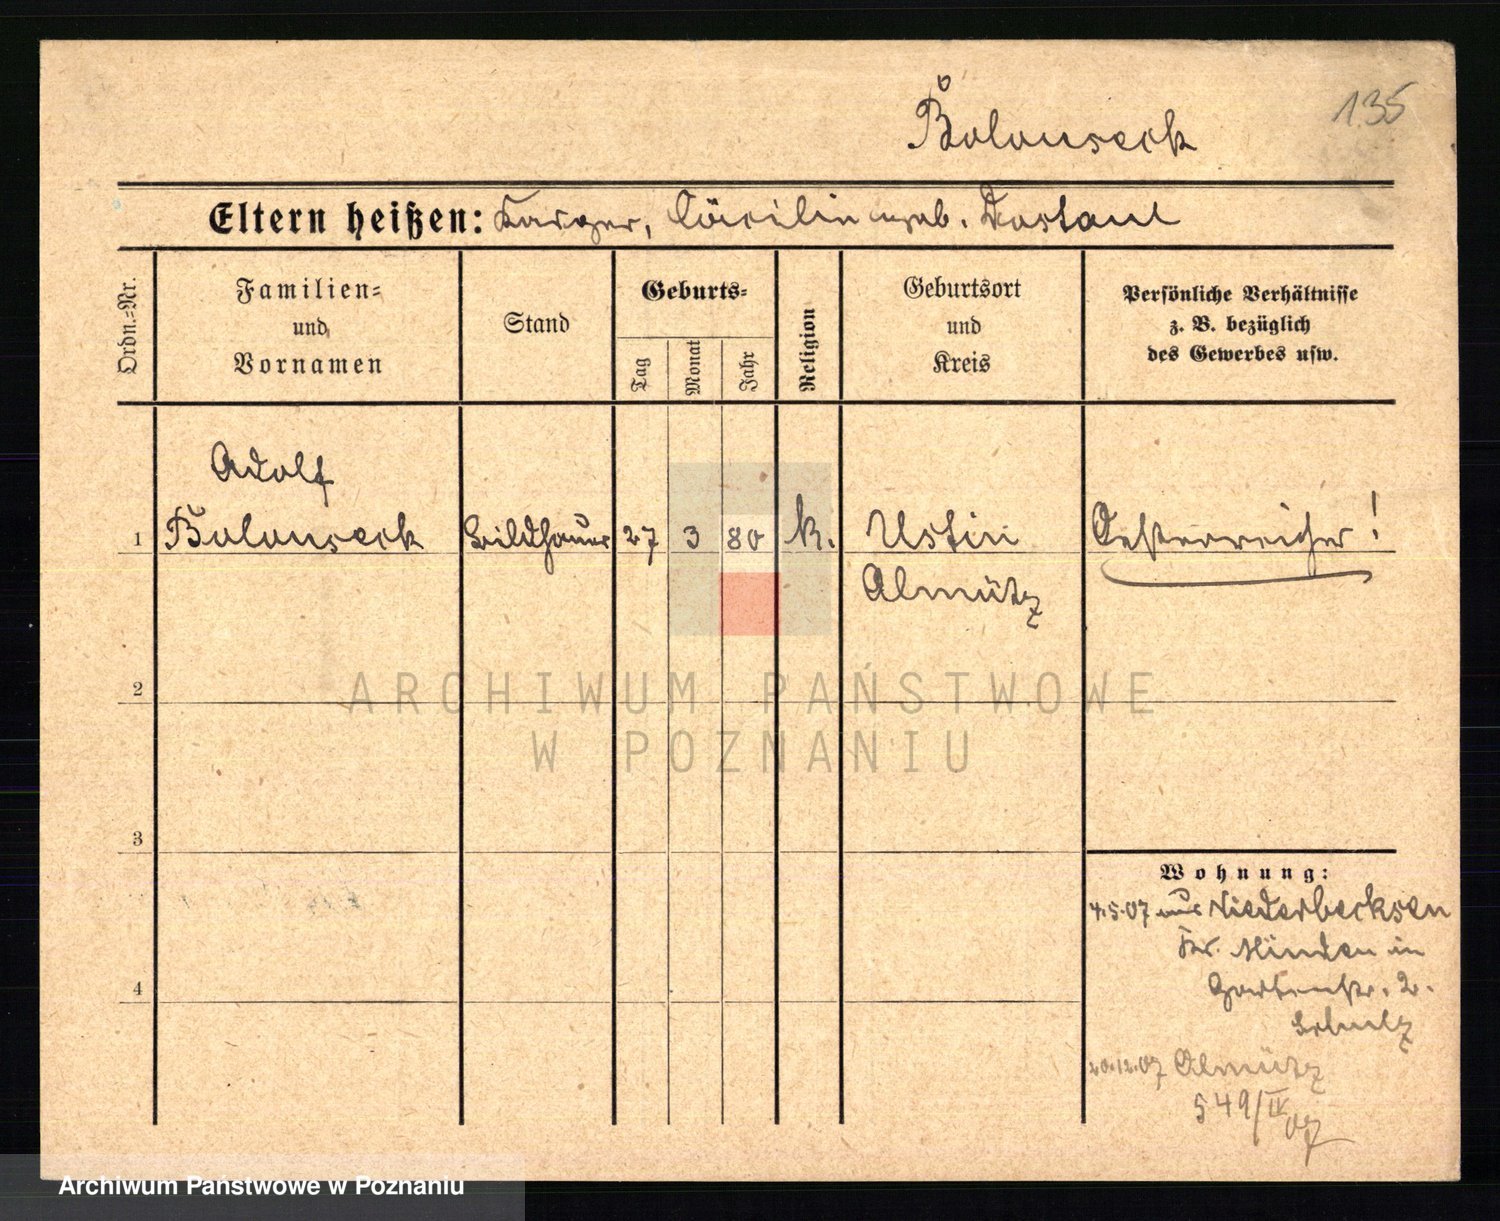 135
Bolouseck
Eltern heißen: Karger, Cäcilin geb. Dostaul
Ordn.-Nr.
Familien-
und
Vornamen
Stand
Geburts-
Tag
Monat
Jahr
Religion
Geburtsort
und
Kreis
Persönliche Verhältnisse
z. B. bezüglich
des Gewerbes usw.
Adolf
1 Bolouseck Bildhauer 27 3 80 k. Ustin Oesterreicher!
Olmütz
2
3
4
Wohnung:
4.5.07 aus Niederbecksen
Kr. Minden in
Gartenstr. 2.
Schulz
20.12.07 Olmütz
549/IV
07
ARCHIWUM PAŃSTWOWE
W POZNANIU
Archiwum Państwowe w Poznaniu